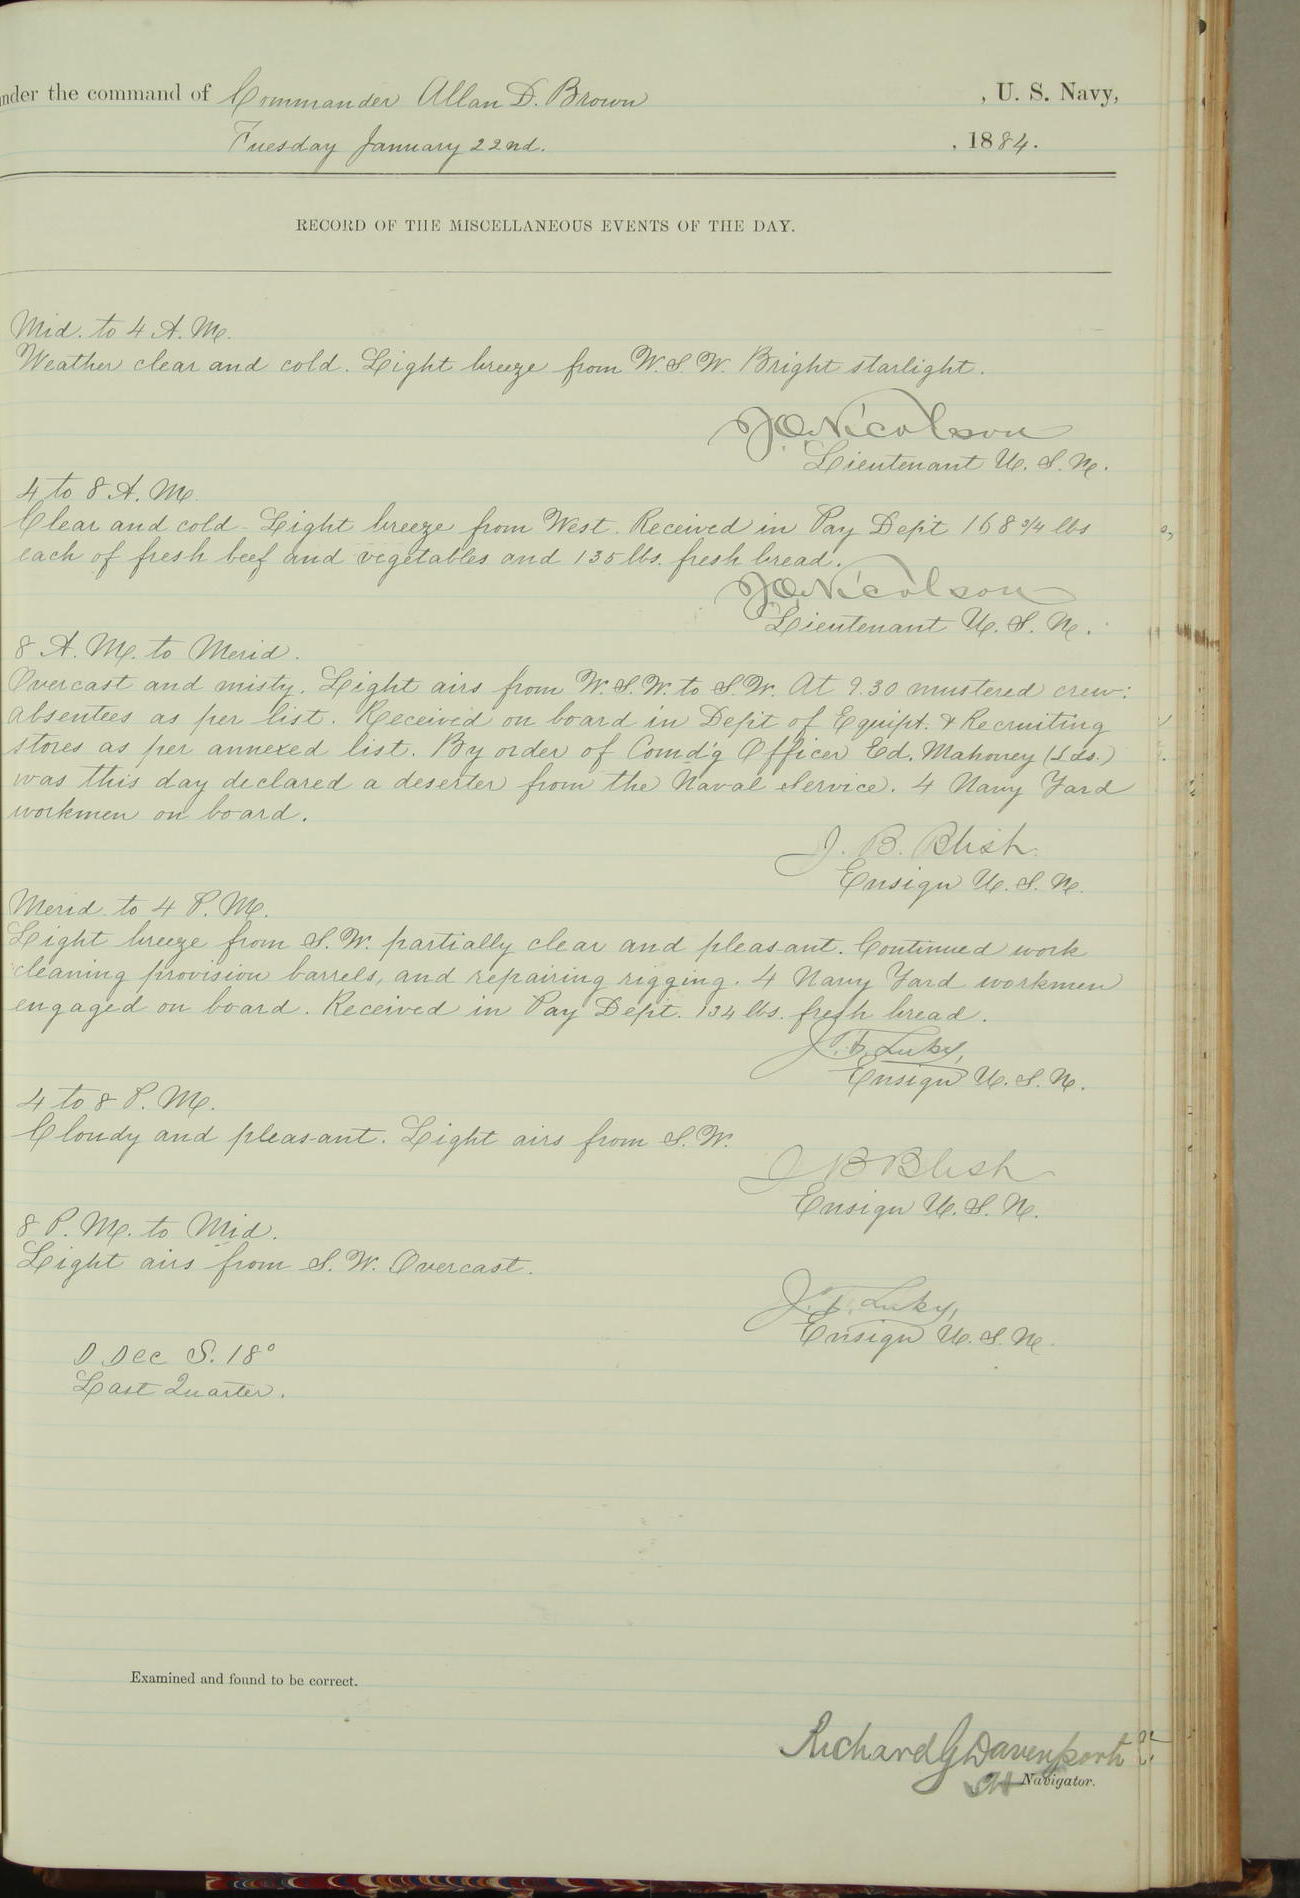 nder the command of Commander Allan D. Brown , U. S. Navy,
Tuesday January 22nd. , 1884.
RECORD OF THE MISCELLANEOUS EVENTS OF THE DAY.
Mid. to 4 A. M.
Weather clear and cold. Light breeze from W. S. W. Bright starlight.
Nicolson
Lieutenant U. S. N.
4 to 8 A. M.
Clear and cold. Light breeze from West. Received in Pay Dep't 168 3/4 lbs
each of fresh beef and vegetables and 135 lbs. fresh bread.
Nicolson
Lieutenant U. S. N.
8 A. M. to Merid.
Overcast and misty. Light airs from W. S. W. to S. W. At 9.30 mustered crew:
absentees as per list. Received on board in Dep't of Equipt. & Recruiting
stores as per annexed list. By order of Comd'g Officer Ed. Mahoney (Lds.)
was this day declared a deserter from the Naval Service. 4 Navy Yard
workmen on board.
J. B. Blish.
Ensign U. S. N.
Merid. to 4 P. M.
Light breeze from S. W. partially clear and pleasant. Continued work
cleaning provision barrels, and repairing rigging. 4 Navy Yard workmen
engaged on board. Received in Pay Dept. 134 lbs. fresh bread.
Luby,
Ensign U. S. N.
4 to 8 P. M.
Cloudy and pleasant. Light airs from S. W.
J B Blish
Ensign U. S. N.
8 P. M. to Mid.
Light airs from S. W. Overcast.
Luby,
Ensign U. S. N.
Dec S. 18°
Last Quarter.
Examined and found to be correct.
Richard G Davenport
Navigator.